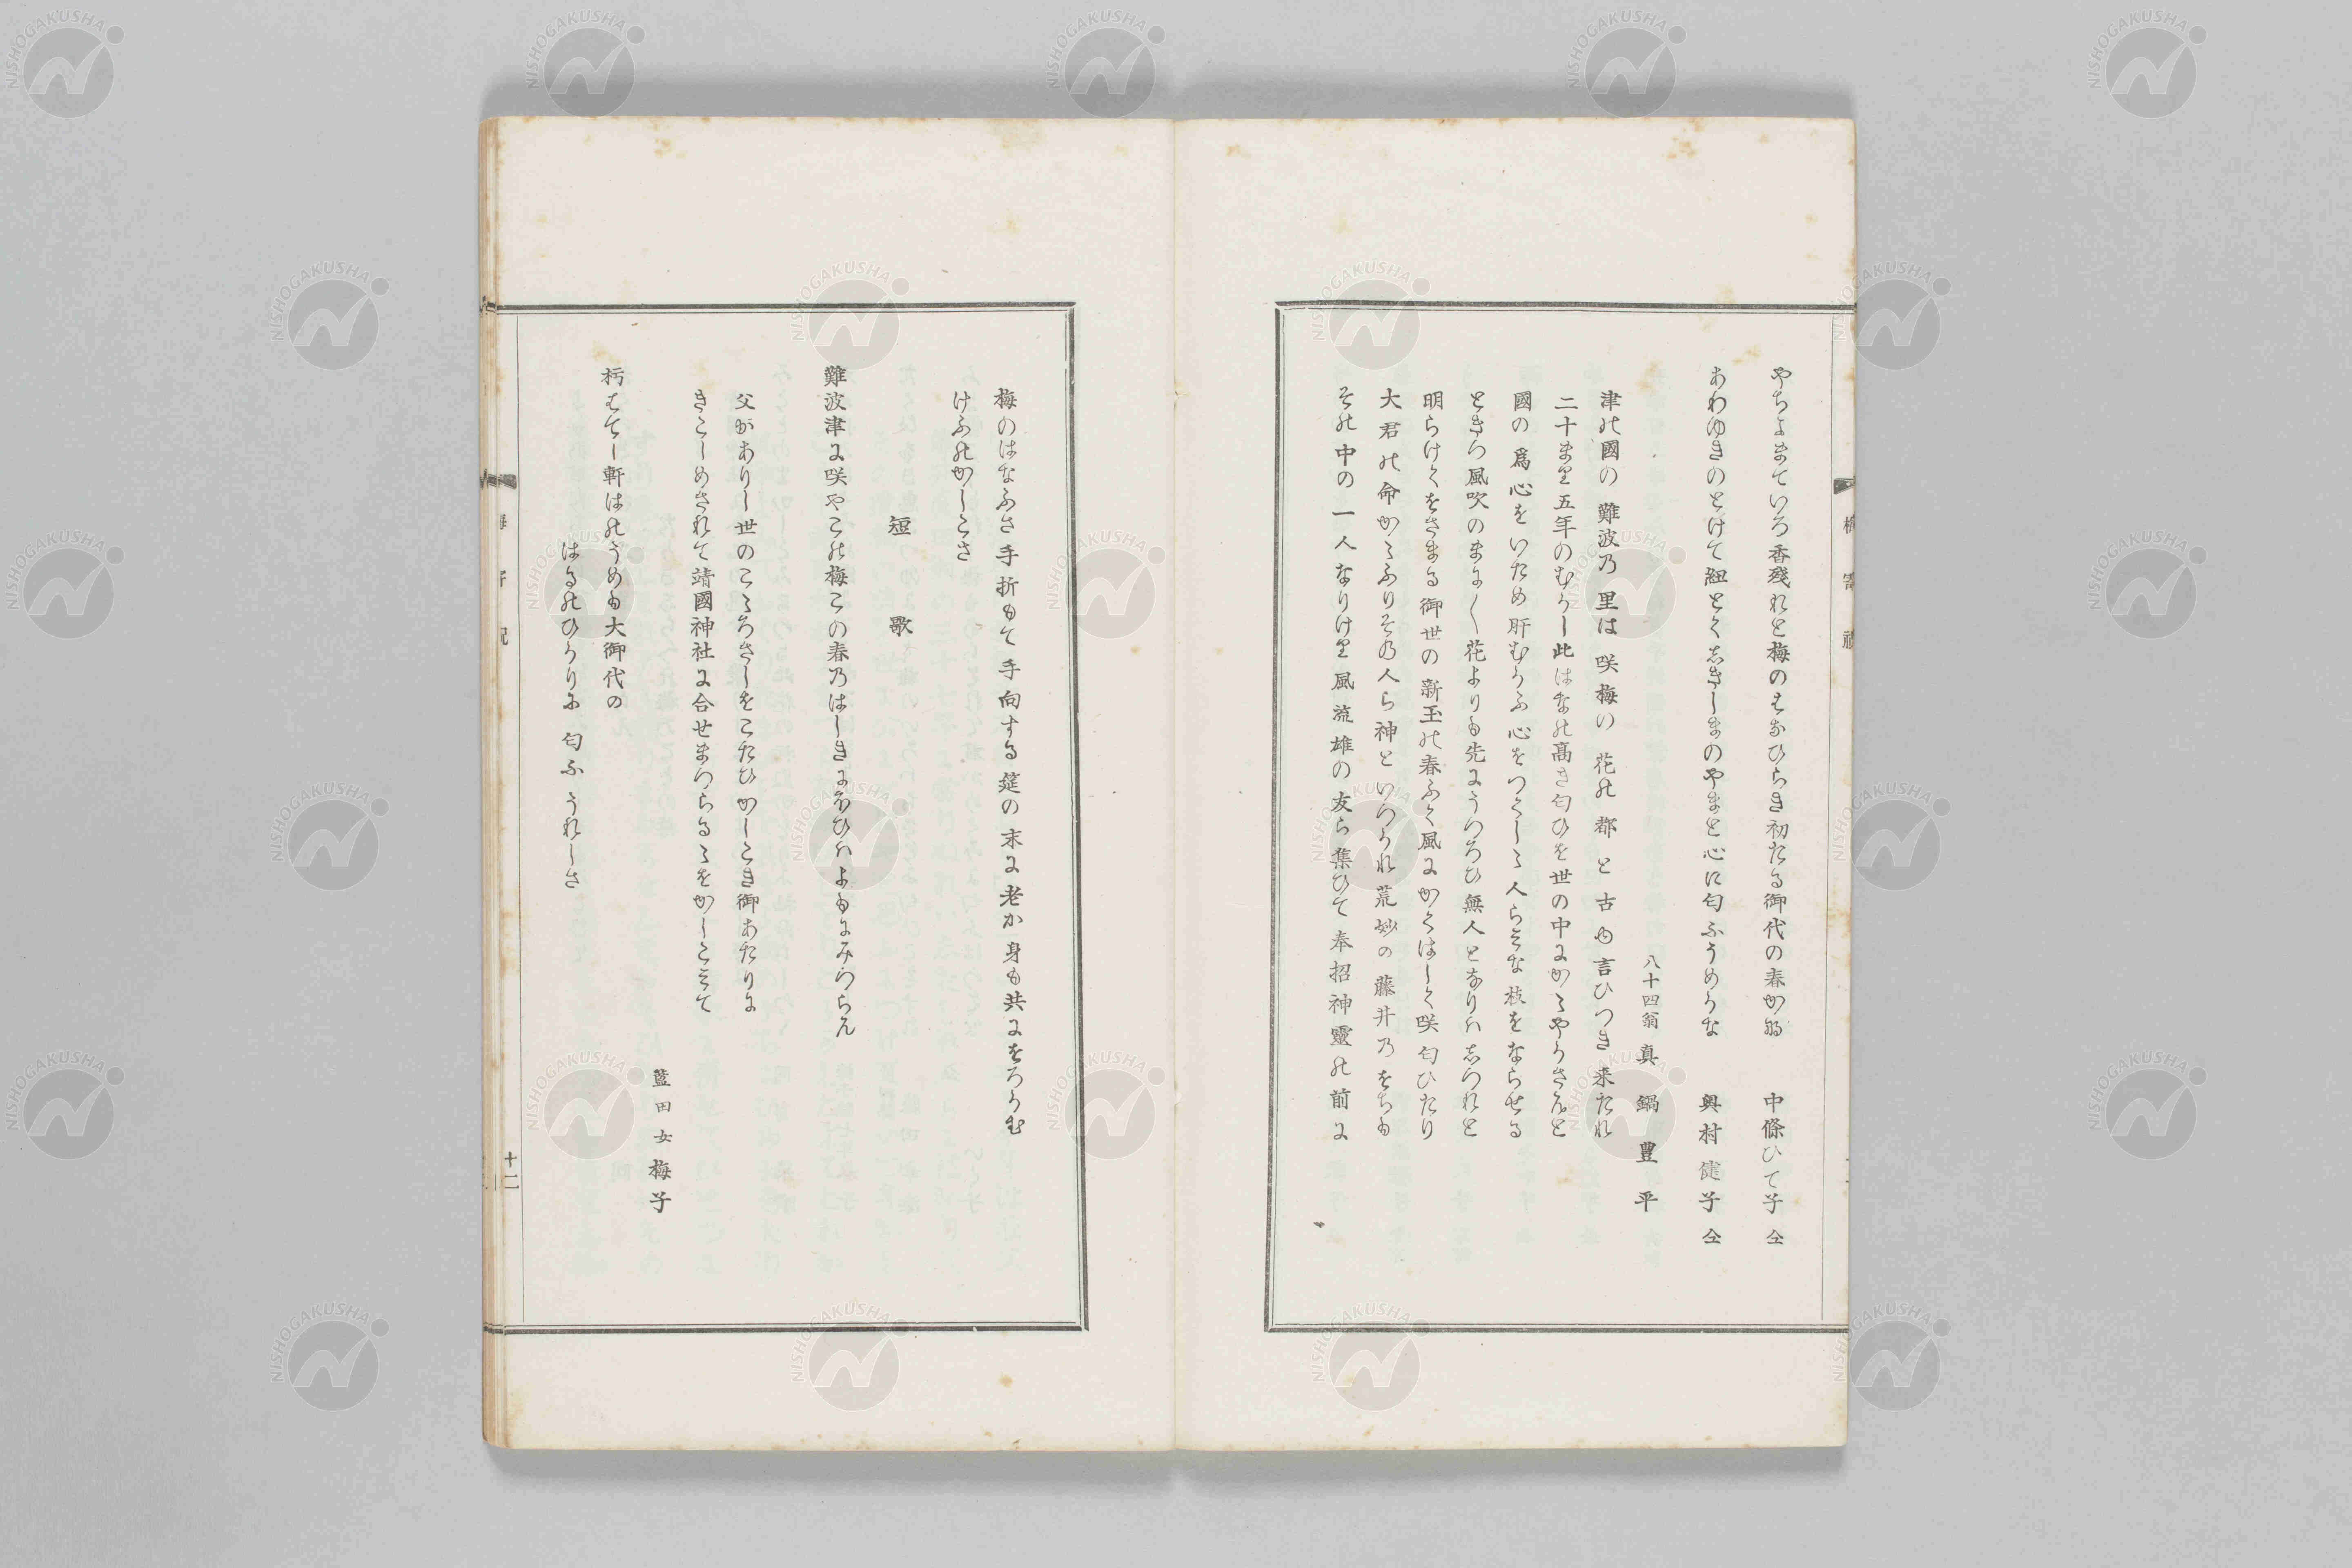 やちよまていろ香殘れと梅のはなひらき初たる御代の春かな 中條ひて子 仝
あわゆきのとけて紐とくしきしまのやまと心に匂ふうめかな 奥村健子 仝
八十四翁 真鍋豊平
津の國の 難波乃 里は 咲梅の 花の 都 と 古も言ひつき来たれ
二十まり五年のむかし此はなの高き匂ひを世の中にかゝやかさんと
國の爲心をいため肝むかふ心をつくしゝ人らそな枝をならせる
ときつ風吹のまに〱花よりも先にうつろひ無人となりハしつれと
明らけくをさまる御世の新玉の春ふく風にかくはしく咲匂ひたり
大君の命かゝふりその人ら神といつかれ荒妙の藤井乃をちも
その中の一人なりけり風流雄の友ら集ひて奉招神靈の前に
梅のはなふさ手折もて手向する筵の末に老か身も共にをろかむ
けふのかしこさ
短歌
難波津に咲やこの梅この春乃はしきにほひハよもにみつらん
父がありし世のこゝろさしをこたひかしこき御あたりに
きこしめされて靖國神社に合せまつらるゝをかしこみて
藍田女 梅子
朽はてし軒はのうめも大御代の
はるのひかりに 匂ふ うれしさ
十二